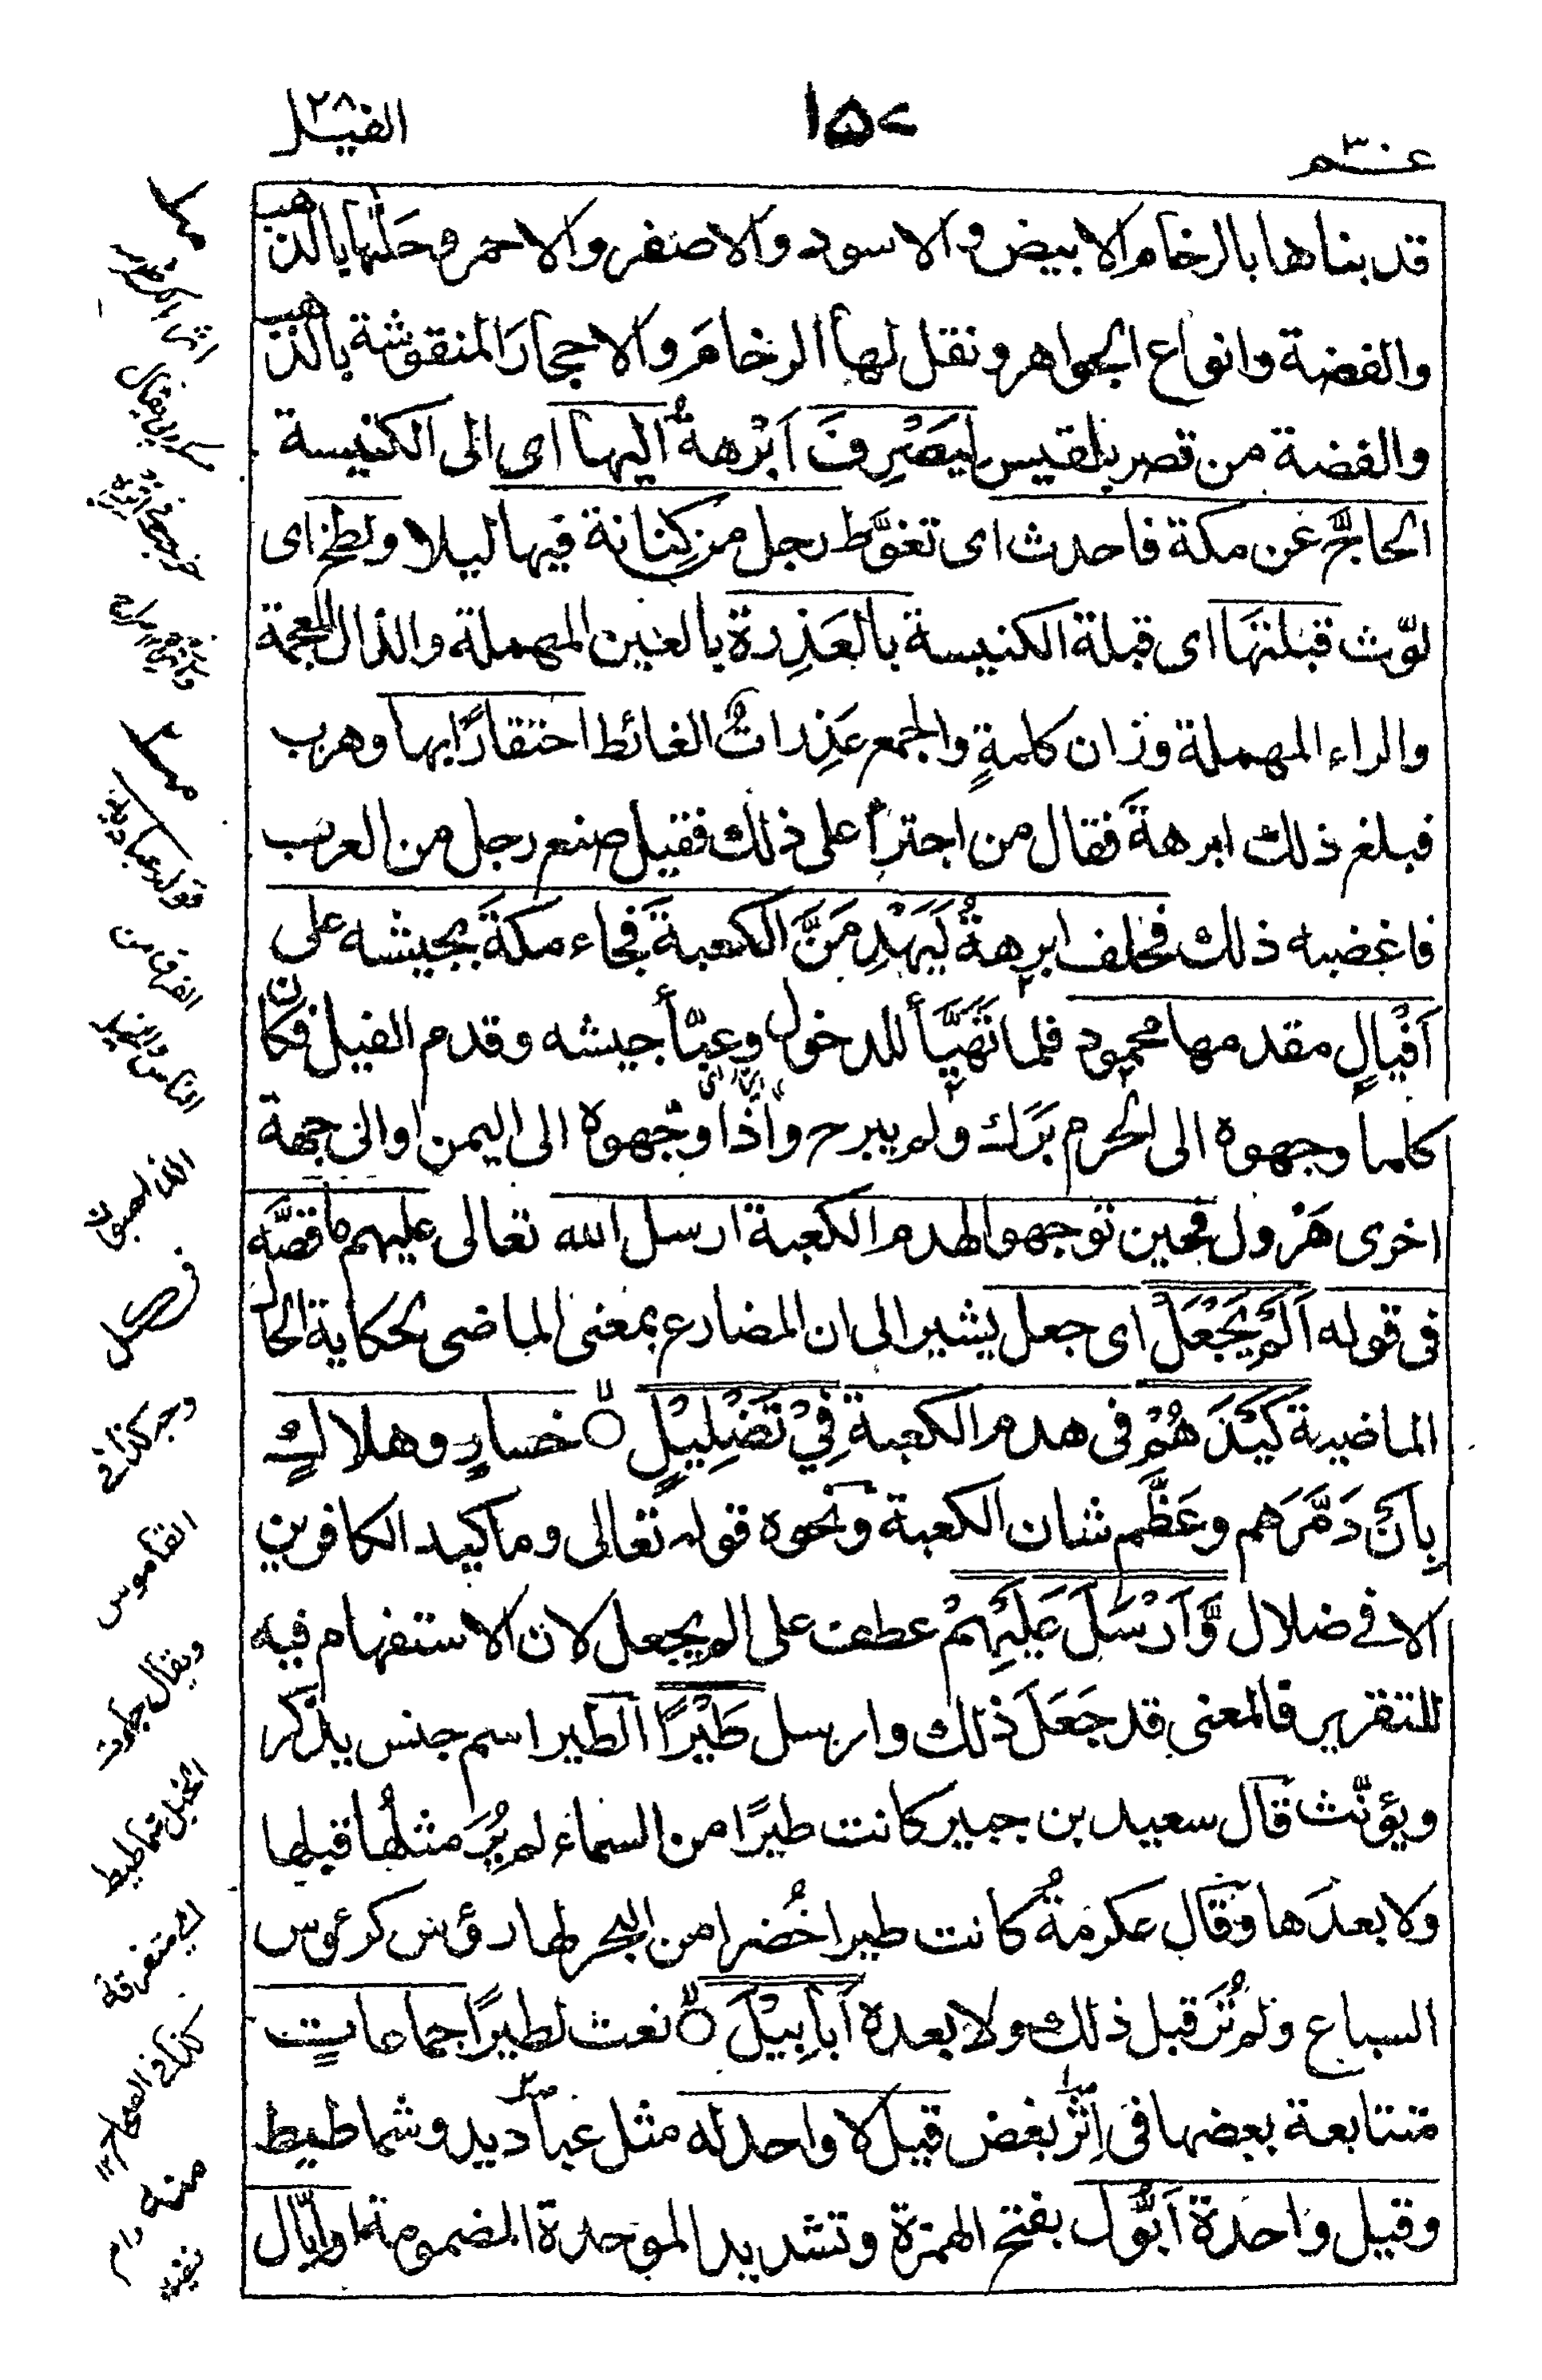 عم ٣٠
١٥٧
الفيل ٢٨
قد بناها بالرخام الابيض والاسود والاصفر والاحمر وحلّها بالذهب
والفضة وانواع الجواهر ونقل لها الرخامَ والاحجارَ المنقوشة بالذهب
والفضة من قصر بلقيس ليَصْرِفَ اَبْرهةُ اليها اى الى الكنيسة
الحاجَّ عن مكة فاحدث اى تغوَّط رجل من كِنانة فيها ليلا ولطخ اى
لوّث قبلتَها اى قبلة الكنيسة بالعَذِرة بالعين المهملة والذال المعجمة
والراء المهملة وزان كلمةٍ والجمع عَذِراتٌ الغائط احتقارًا بها وهرب
فبلغ ذلك ابرهةَ فقال من اجترأ على ذلك فقيل صنع رجل من العرب
فاغضبه ذلك فحلف ابرهةُ لَيَهْدِمَنَّ الكعبةَ فجاء مكةَ بجيشه على
اَفْيالٍ مقدمها محمود فلما تَهَيَّأ للدخول وعبّأ جيشه وقدم الفيل فكان
كلما وجهوه الى الحرم بَرَك ولم يبرح واذا وجّهوه الى اليمن او الى جهة
اخرى هَرْول فحين توجهوا لهدم الكعبة ارسل الله تعالى عليهم ما قصَّه
فى قوله اَلَمْ يَجْعَلْ اى جعل يشير الى ان المضارع بمعنى الماضى لحكاية الحال
الماضية كَيْدَهُمْ فى هدم الكعبة فِيْ تَضْلِيْلٍ ۝ خسارٍ وهلاكٍ
بِاَنْ دَمَّرَهم وعَظَّم شان الكعبة ونحوه قوله تعالى وما كيد الكافرين
الا في ضلال وَّاَرْسَلَ عَلَيْهِمْ عطف على الم يجعل لان الاستفهام فيه
للتقرير فالمعنى قد جَعَلَ ذلك وارسل طَيْرًا الطير اسم جنس يذكّر
ويؤنّث قال سعيد بن جبير كانت طيرًا من السماء لم يُرَ مثلُها قبلها
ولا بعدَها وقال عكرمةُ كانت طيرا خُضرا من البحر لها رؤس كرءوس
السباع ولم تُرَ قبل ذلك ولا بعده اَبابِيْلَ ۝ نعت لطيرًا جماعاتٍ
متتابعة بعضها فى اِثْر بعض قيل لا واحد له مثل عباديد وشماطيط
وقيل واحدة اَبُّول بفتح الهمزة وتشديد الموحدة المضمومة او اِبّال
قوله عباديد
الفرق من
الناس
وجر كذا فى
القاموس
ويقال جاءت
الخيل شماطيط
اى متفرقة
كذا فى الصحاح ١٢
منه